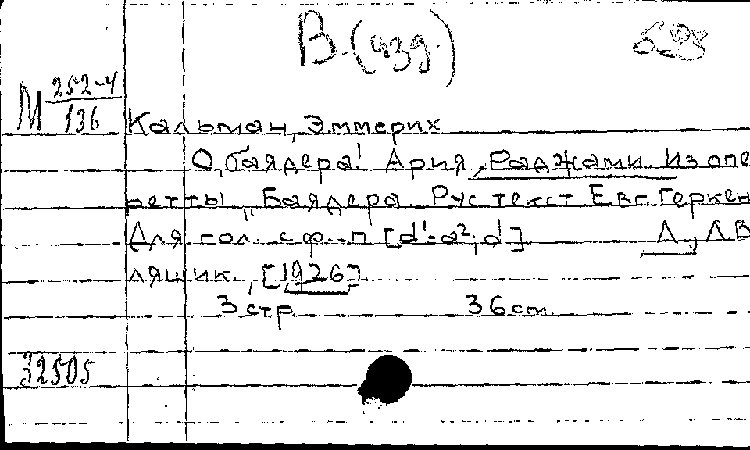 В (изд.)
М 252-4/136
Кальман, Эммерих
О, баядера! Ария Раджами. Из опе
ретты „Баядера. Рус текст Евг. Геркен
Для гол. с ф-п [d¹-a²; d¹] Л., АВ
лящик., [1926]
3 стр 36 cm.
32505